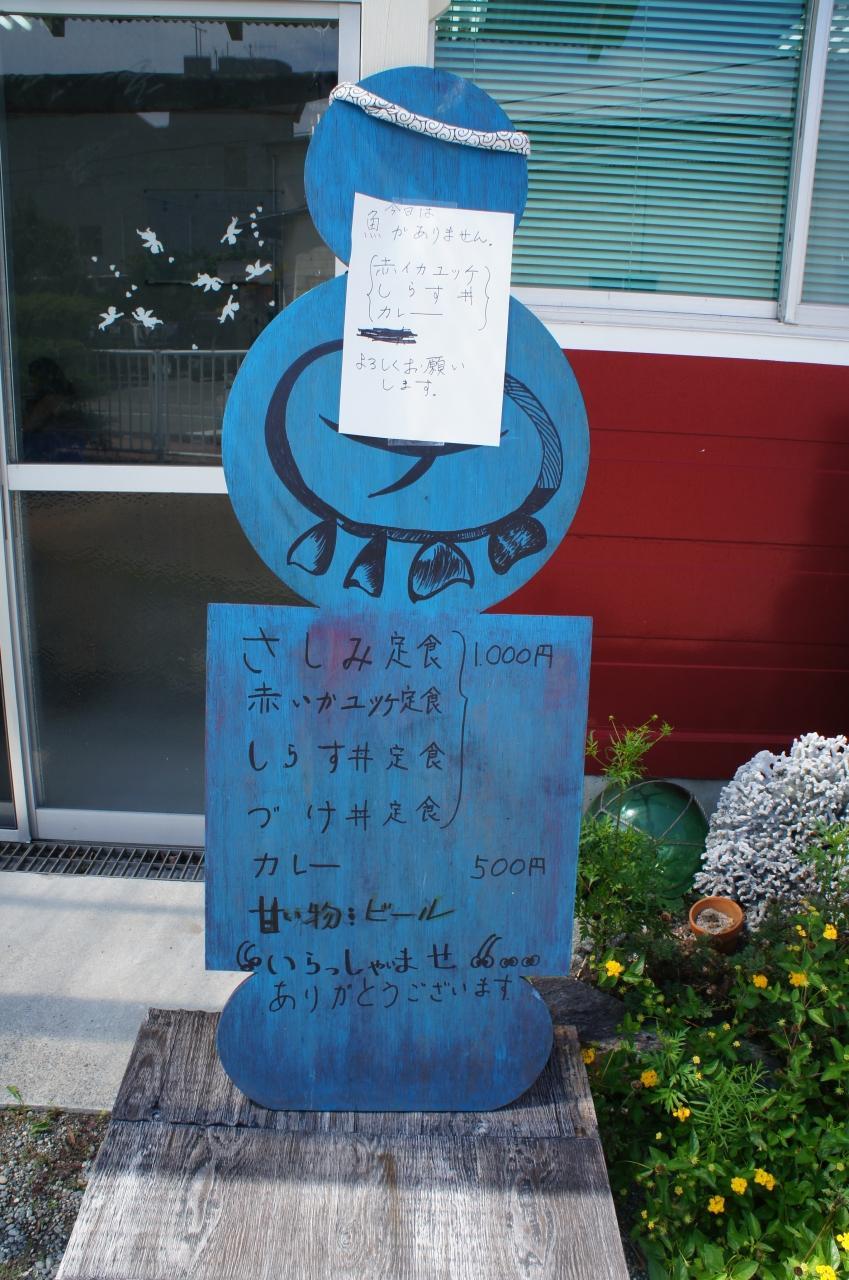 今日は
魚がありません。
赤イカユッケ
しらす丼
カレー
よろしくお願い
します。
さしみ定食 1.000円
赤いかユッケ定食
しらす丼定食
づけ丼定食
カレー 500円
甘い物:ビール
いらっしゃいませ
ありがとうございます